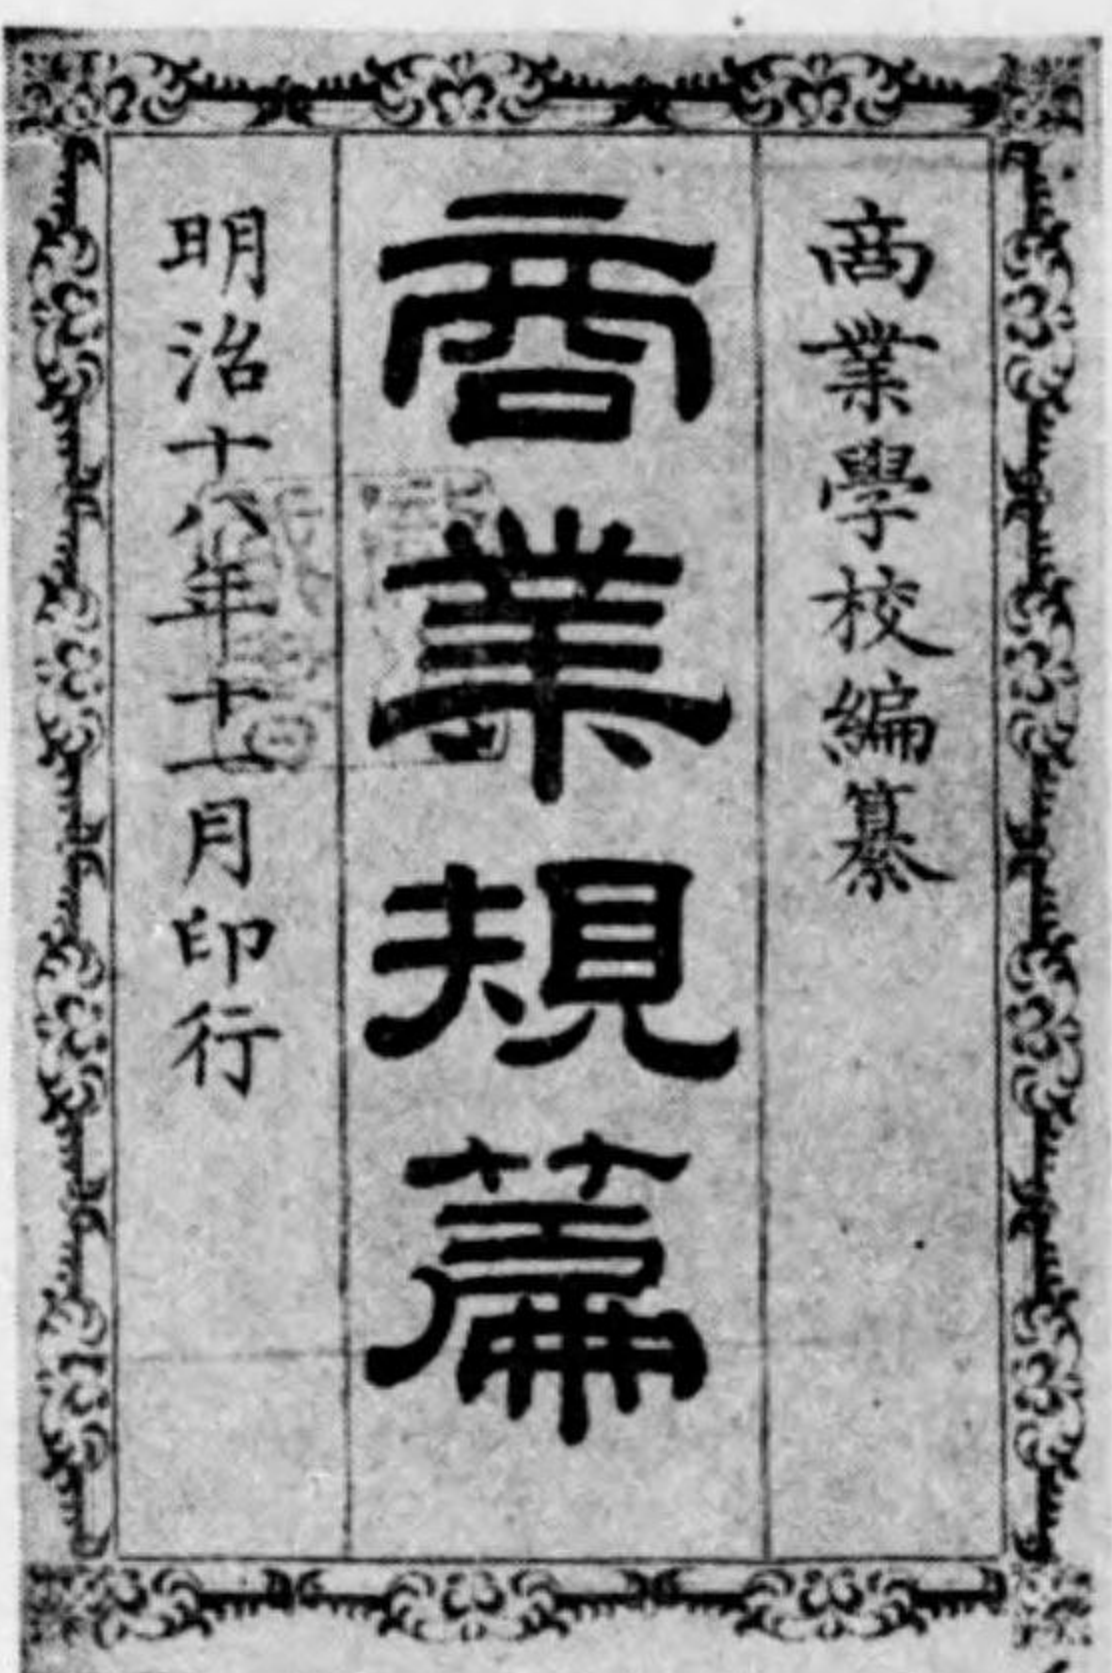 商業學校編纂
商業規篇
明治十八年十一月印行